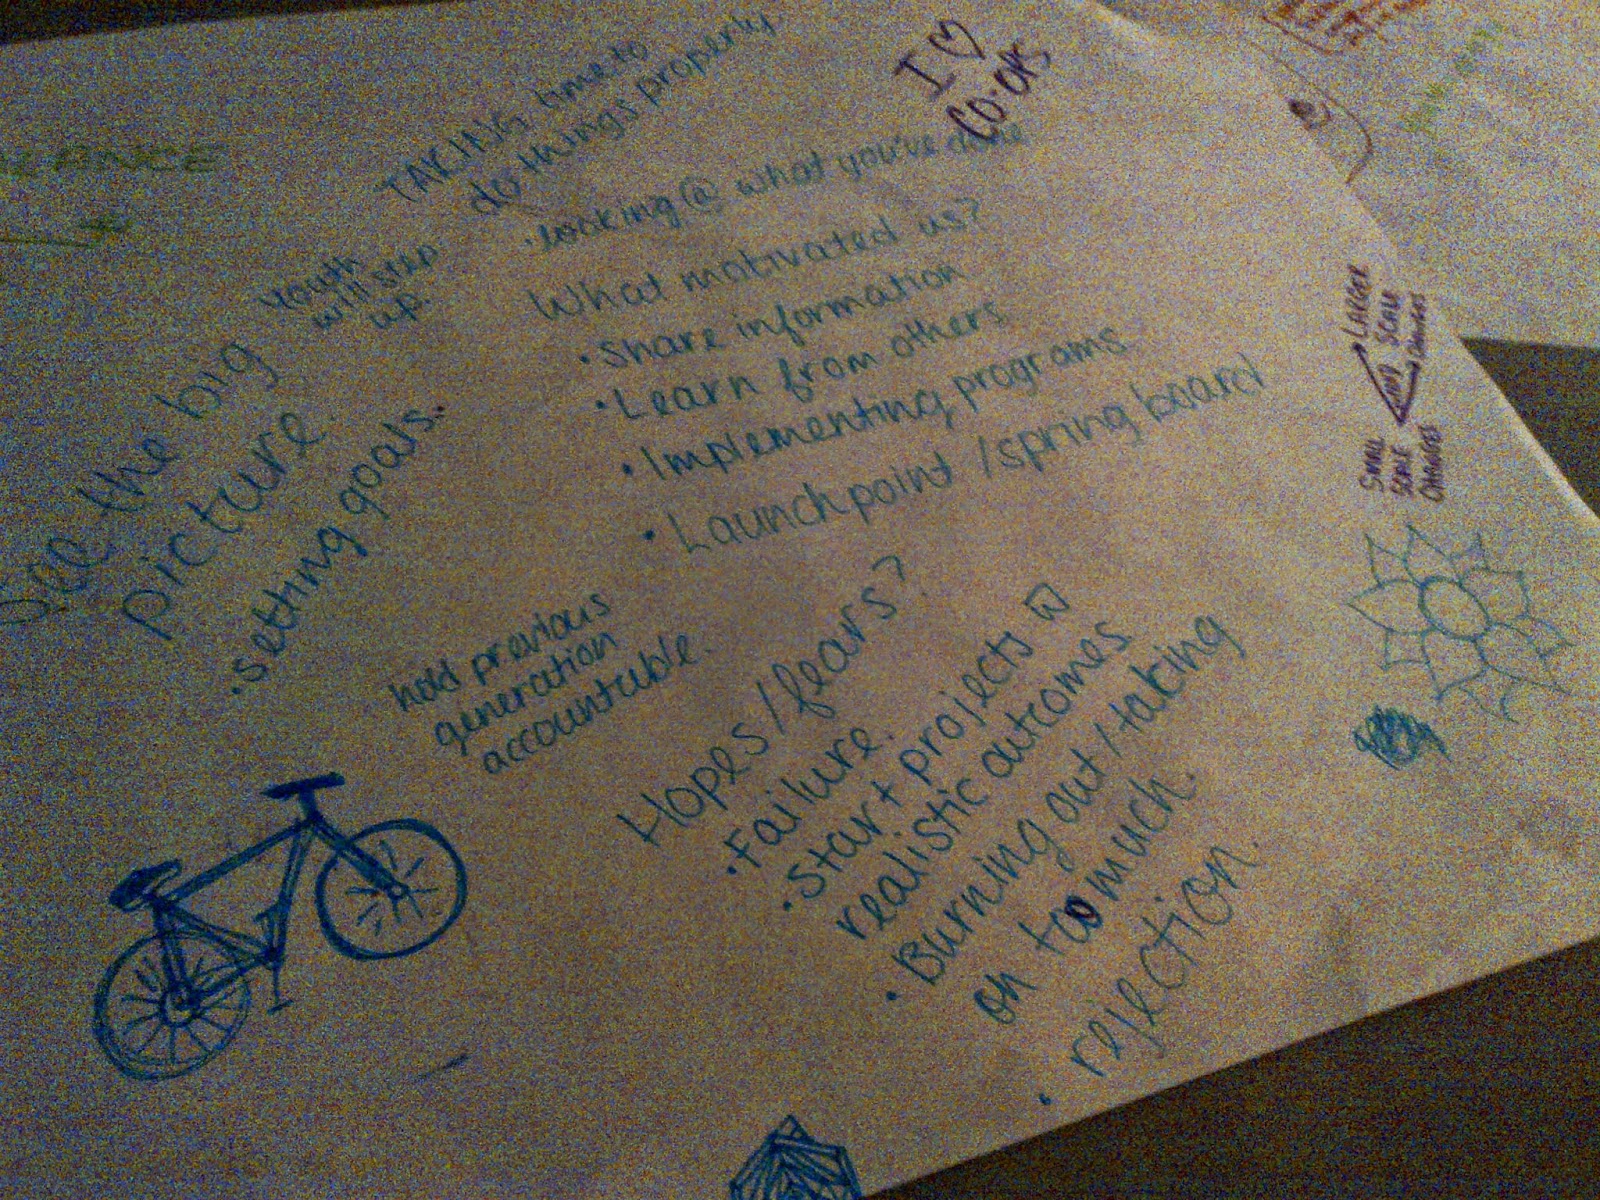 TAKING time to
do things properly
• looking @ what you've done
I ♡
CO-OPS
Youth
will step
up.
See the big
picture.
• setting goals.
What motivated us?
• Share information
• Learn from others
• Implementing programs
• Launchpoint / spring board
LARGER
SCALE
CHANGES
SMALL
SCALE
CHANGES
hold previous
generation
accountable.
Hopes / fears?
• Failure.
• Start projects w
realistic outcomes
• Burning out / taking
on too much.
• rejection.